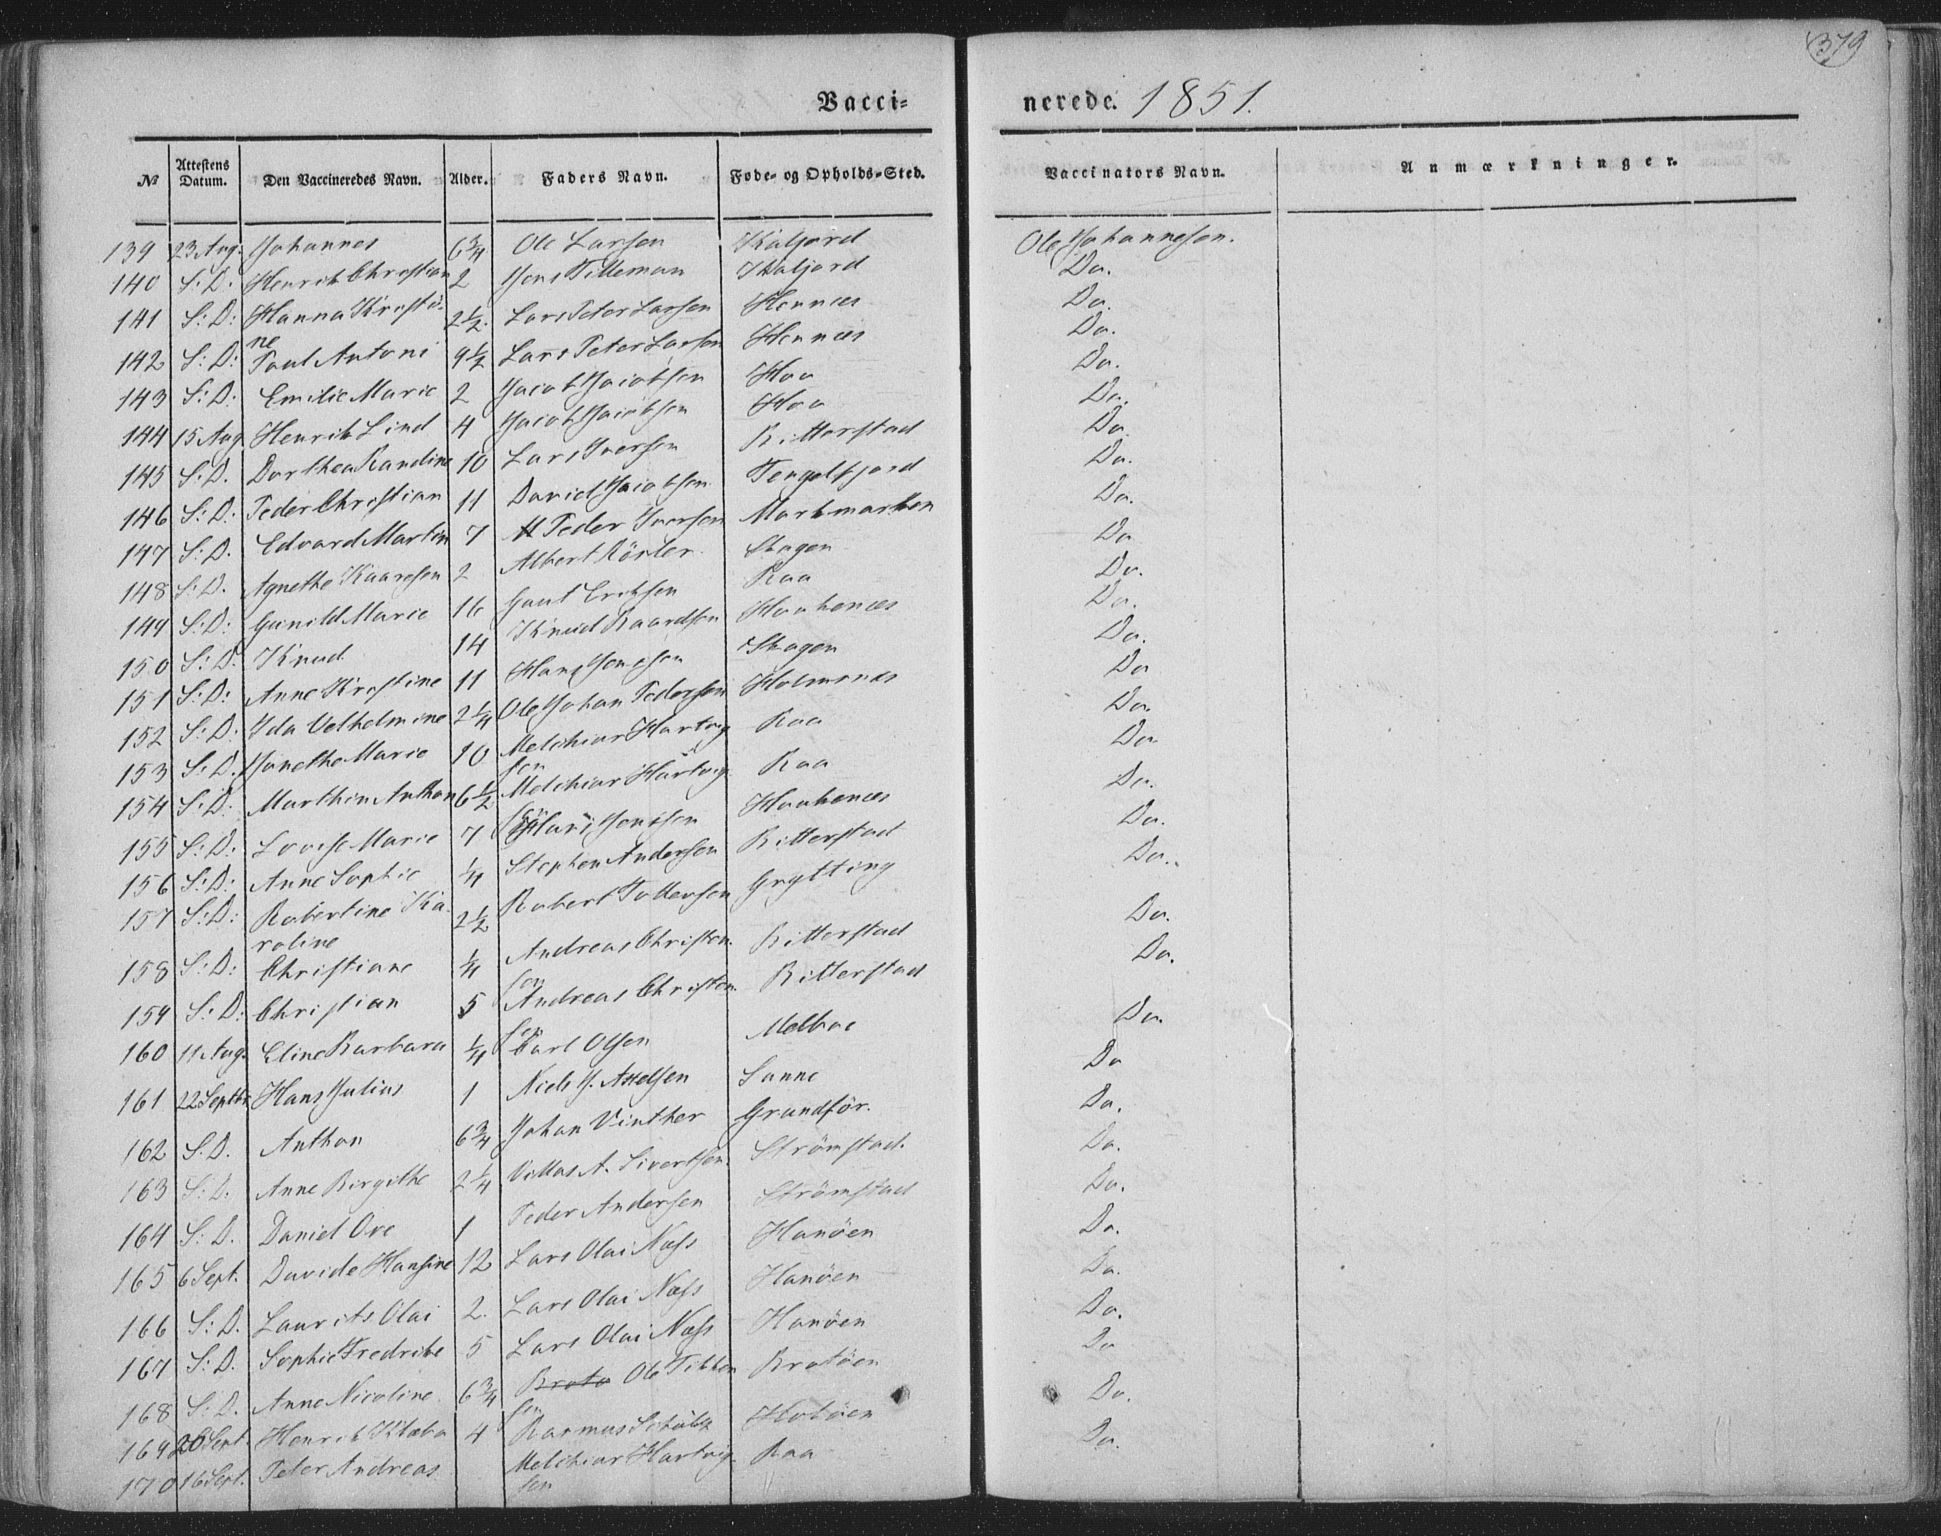 379
Vacci= nerede. 1851.
№ Attestens Datum. Den Vaccineredes Navn. Alder. Faders Navn. Føde= og Opholds=Sted. Vaccinators Navn. Anmærkninger.
139 23 Aug. Johannes 6¾ Ole Larsen Kaljord Ole Johannesen.
140 S: D: Henrik Christian 2 Jens Tilleman Kaljord Do.
141 S: D: Hanna Kristi- 2½ Lars Peter Larsen Hennæs Do.
ne
142 S: D: Paul Antoni 9½ Lars Peter Larsen Hennæs Do.
143 S: D: Emilie Marie 2 Jacob Jacobsen Hoa Do.
144 15 Aug Henrik Lind 4 Jacob Jacobsen Hoa Do.
145 S: D. Dorthea Randine 10 Lars Iversen Ritterstad Do.
146 S: D: Peder Christian 11 David Jacobsen Tengelfjord Do.
147 S: D. Edvard Martin 7 Peder Iversen Markmarken Do.
148 S: D. Agnethe Kaaresen 2 Albert Röster Skagen Do
149 S: D: Gunild Marie 16 Gaut Eriksen Raa Do.
150 S: D: Knud 14 Knud Baardsen Haakenæs Do.
151 S: D: Anne Kristine 11 Hans Jensen Skagen Do.
152 S: D: Ida Velhelmine 2¼ Ole Johan Pedersen Holmenæs Do
153 S: D. Janethe Marie 10 Melchior Hartvig Raa Do.
sen
154 S: D: Marthin Anthon 6½ Melchior Hartvig Raa Do
sen
155 S: D: Lovise Marie 7 Hans Jensen Haakenæs Do.
156 S: D: Anne Sophie ¼ Stephen Andersen Ritterstad Do.
157 S: D: Robertine Ka- 2½ Robert Tollersen Grytting Do.
roline
158 S: D: Christiane ¼ Andreas Christen- Ritterstad Do.
sen
159 S: D: Christian 5 Andreas Christen- Ritterstad Do.
sen
160 11 Aug. Eline Barbara ¼ Carl Olsen Melboe Do.
161 22 Septbr Hans Julius 1 Niels J. Axelsen Sanne Do
162 S. D. Anthon 6¾ Johan Vinther Grundför. Do.
163 S: D. Anne Birgithe 2¼ Villas A. Sivertsen. Strömstad. Do.
164 S: D. Daniel Ove 1 Peder Andersen Strömstad Do.
165 6 Sept. Davide Hansine 12 Lars Olai Næss Hanöen Do.
166 S: D. Laurits Olai 2. Lars Olai Næss Hanöen Do.
167 S: D. Sophie Fredrike 5 Lars Olai Næss Hanöen Do.
168 S: D. Anne Nicoline 6¾ Broto Ole Tibben Brotöen Do
sen
169 26 Sept. Henrik Klæbo 4 Rasmus Schultz Hotöen Do.
170 16 Sept. Peter Andreas Melchior Hartvig- Raa Do.
sen